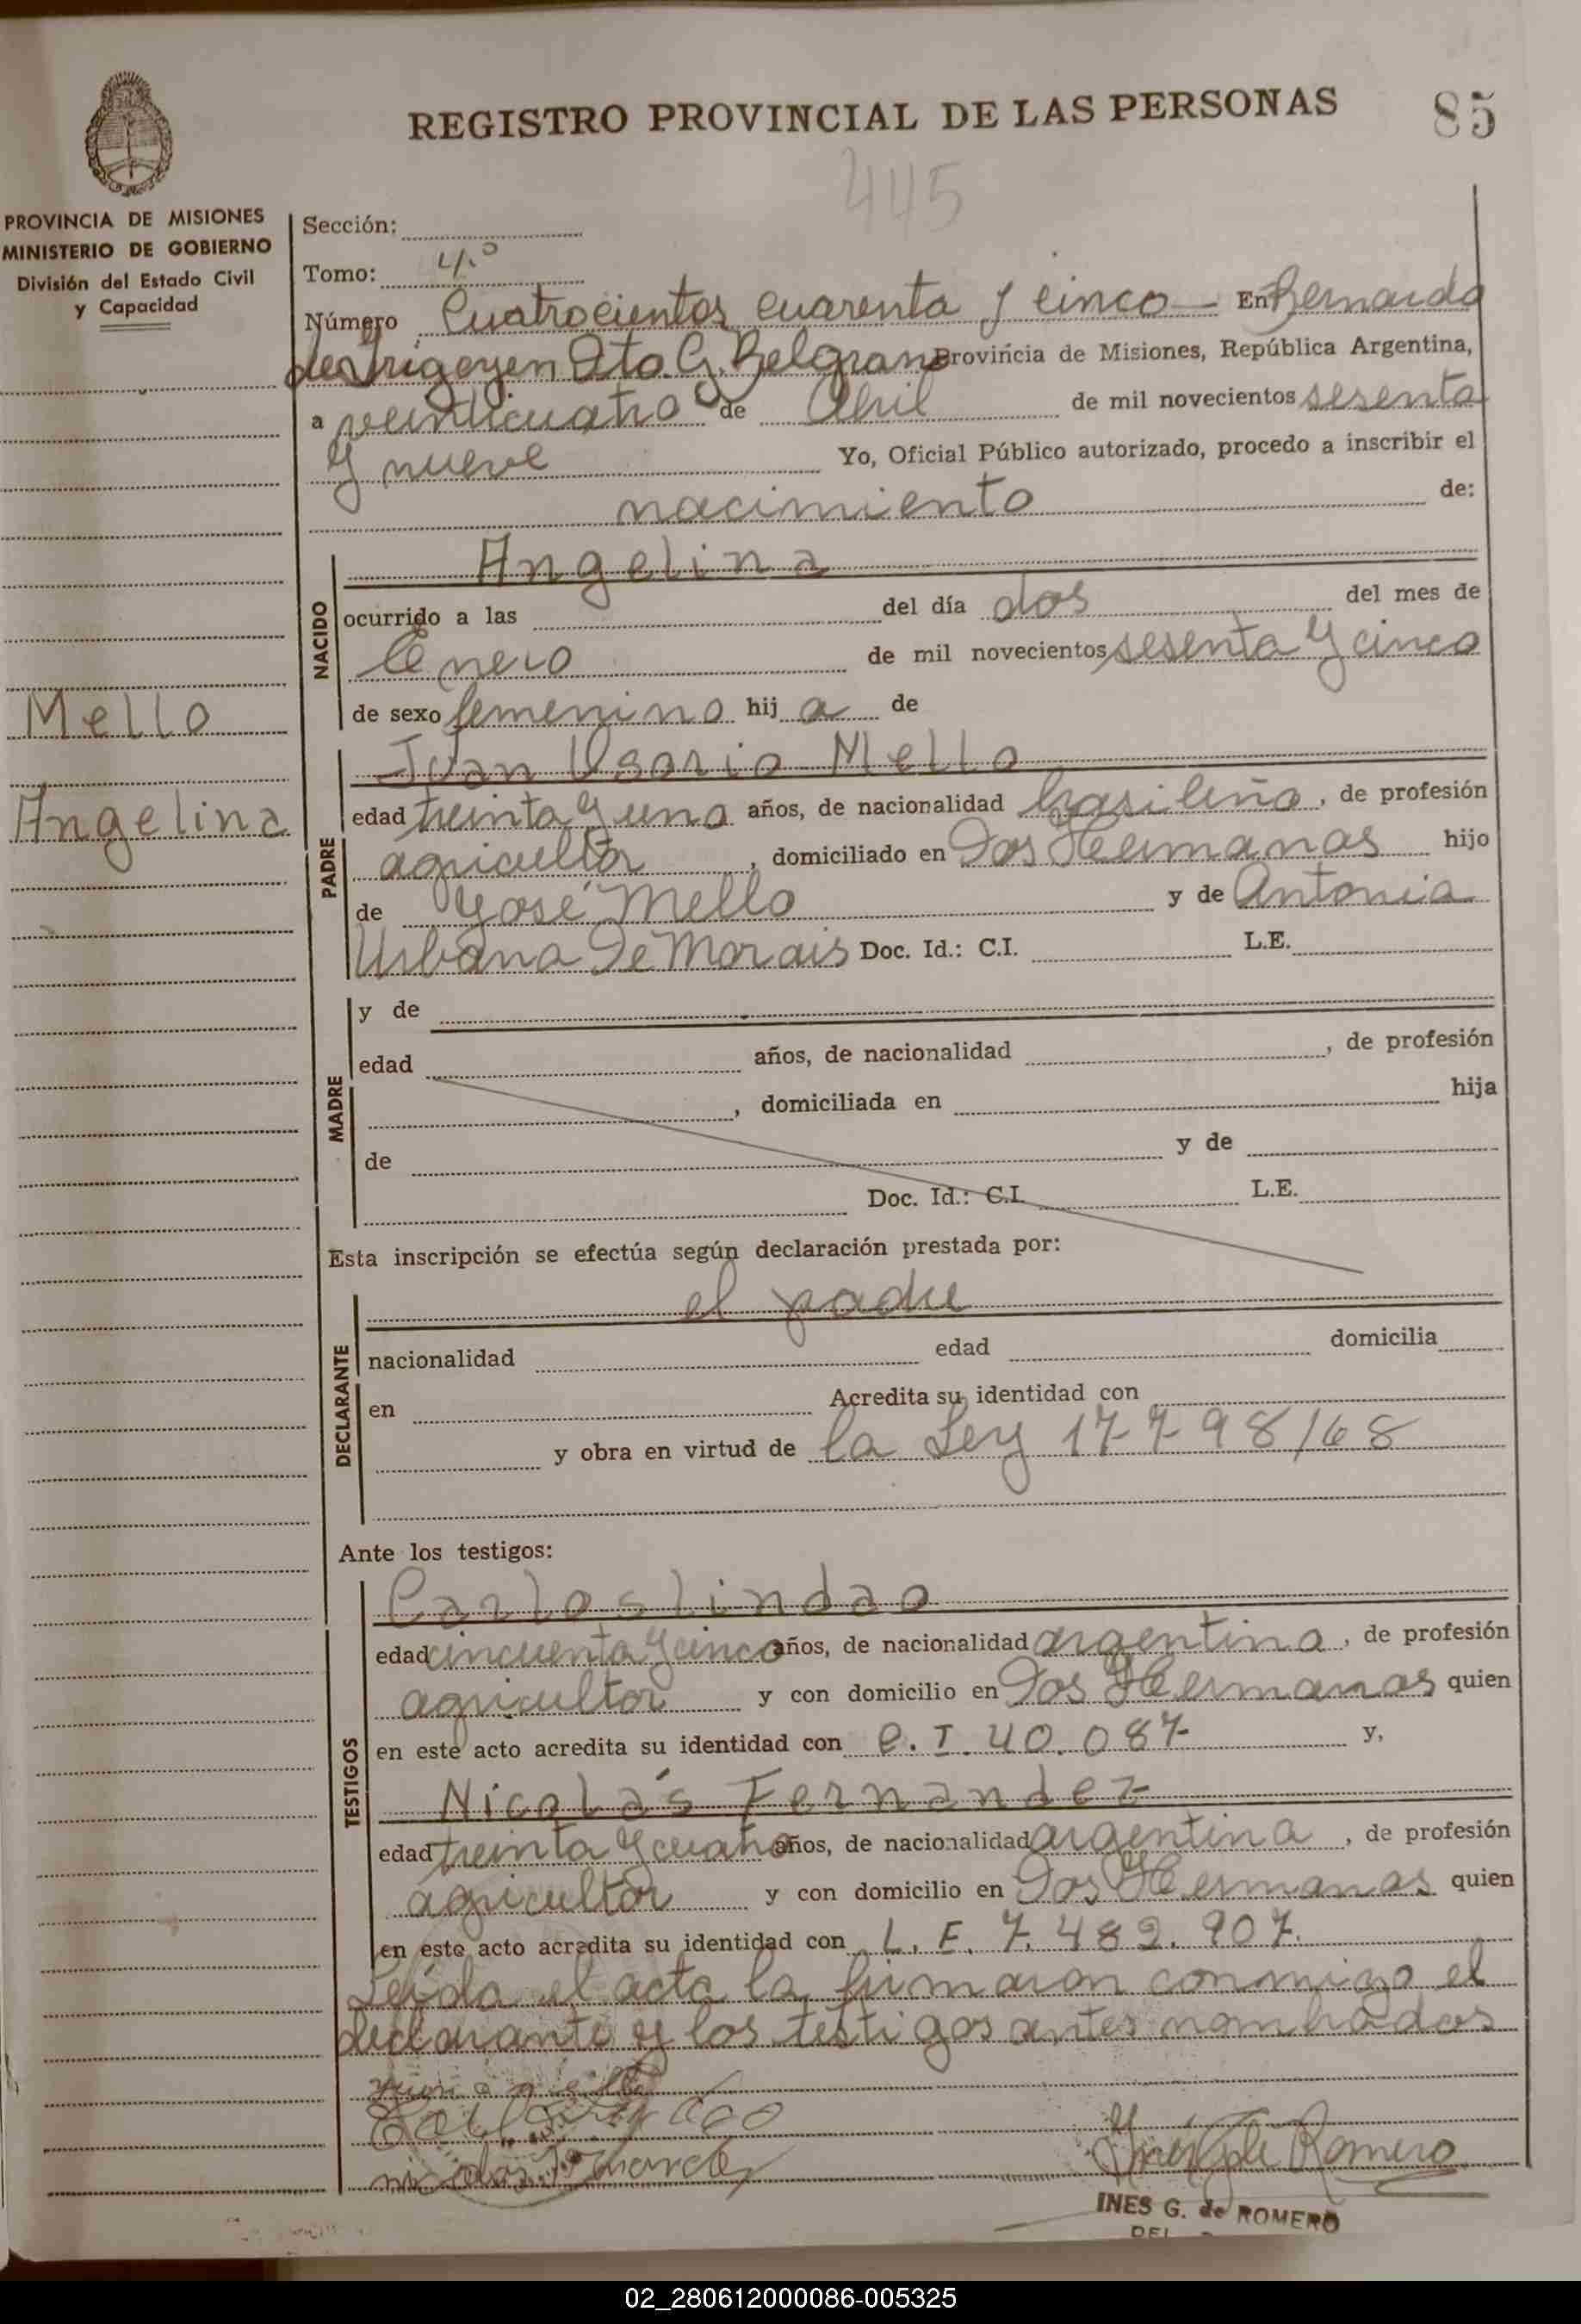 REGISTRO PROVINCIAL DE LAS PERSONAS
85
445
PROVINCIA DE MISIONES
MINISTERIO DE GOBIERNO
División del Estado Civil
y Capacidad
Mello
Angelina
Sección:
Tomo: 4.º
Número Cuatrocientos cuarenta y cinco En Bernardo
de Irigoyen Dto. G. Belgrano Provincia de Misiones, República Argentina,
a veinticuatro de Abril de mil novecientos sesenta
y nueve Yo, Oficial Público autorizado, procedo a inscribir el
nacimiento de:
NACIDO
Angelina
ocurrido a las del día dos del mes de
Enero de mil novecientos sesenta y cinco
de sexo femenino hij a de
PADRE
Juan Osorio Mello
edad treinta y uno años, de nacionalidad brasileño, de profesión
agricultor, domiciliado en Dos Hermanas hijo
de José Mello y de Antonia
Urbana De Morais Doc. Id.: C.I. L.E.
MADRE
y de
edad años, de nacionalidad , de profesión
, domiciliada en hija
de y de
Doc. Id.: C.I. L.E.
Esta inscripción se efectúa según declaración prestada por:
DECLARANTE
el padre
nacionalidad edad domicilia
en Acredita su identidad con
y obra en virtud de la Ley 17798/68
Ante los testigos:
TESTIGOS
Carlos Lindao
edad cincuenta y cinco años, de nacionalidad argentina, de profesión
agricultor y con domicilio en Dos Hermanas quien
en este acto acredita su identidad con C.I. 40.087 y,
Nicolás Fernandez
edad treinta y cuatro años, de nacionalidad argentina, de profesión
agricultor y con domicilio en Dos Hermanas quien
en este acto acredita su identidad con L.E. 7.482.907.
Leída el acta la firmaron conmigo el
declarante y los testigos antes nombrados
Romero
INES G. de ROMERO
02_280612000086-005325